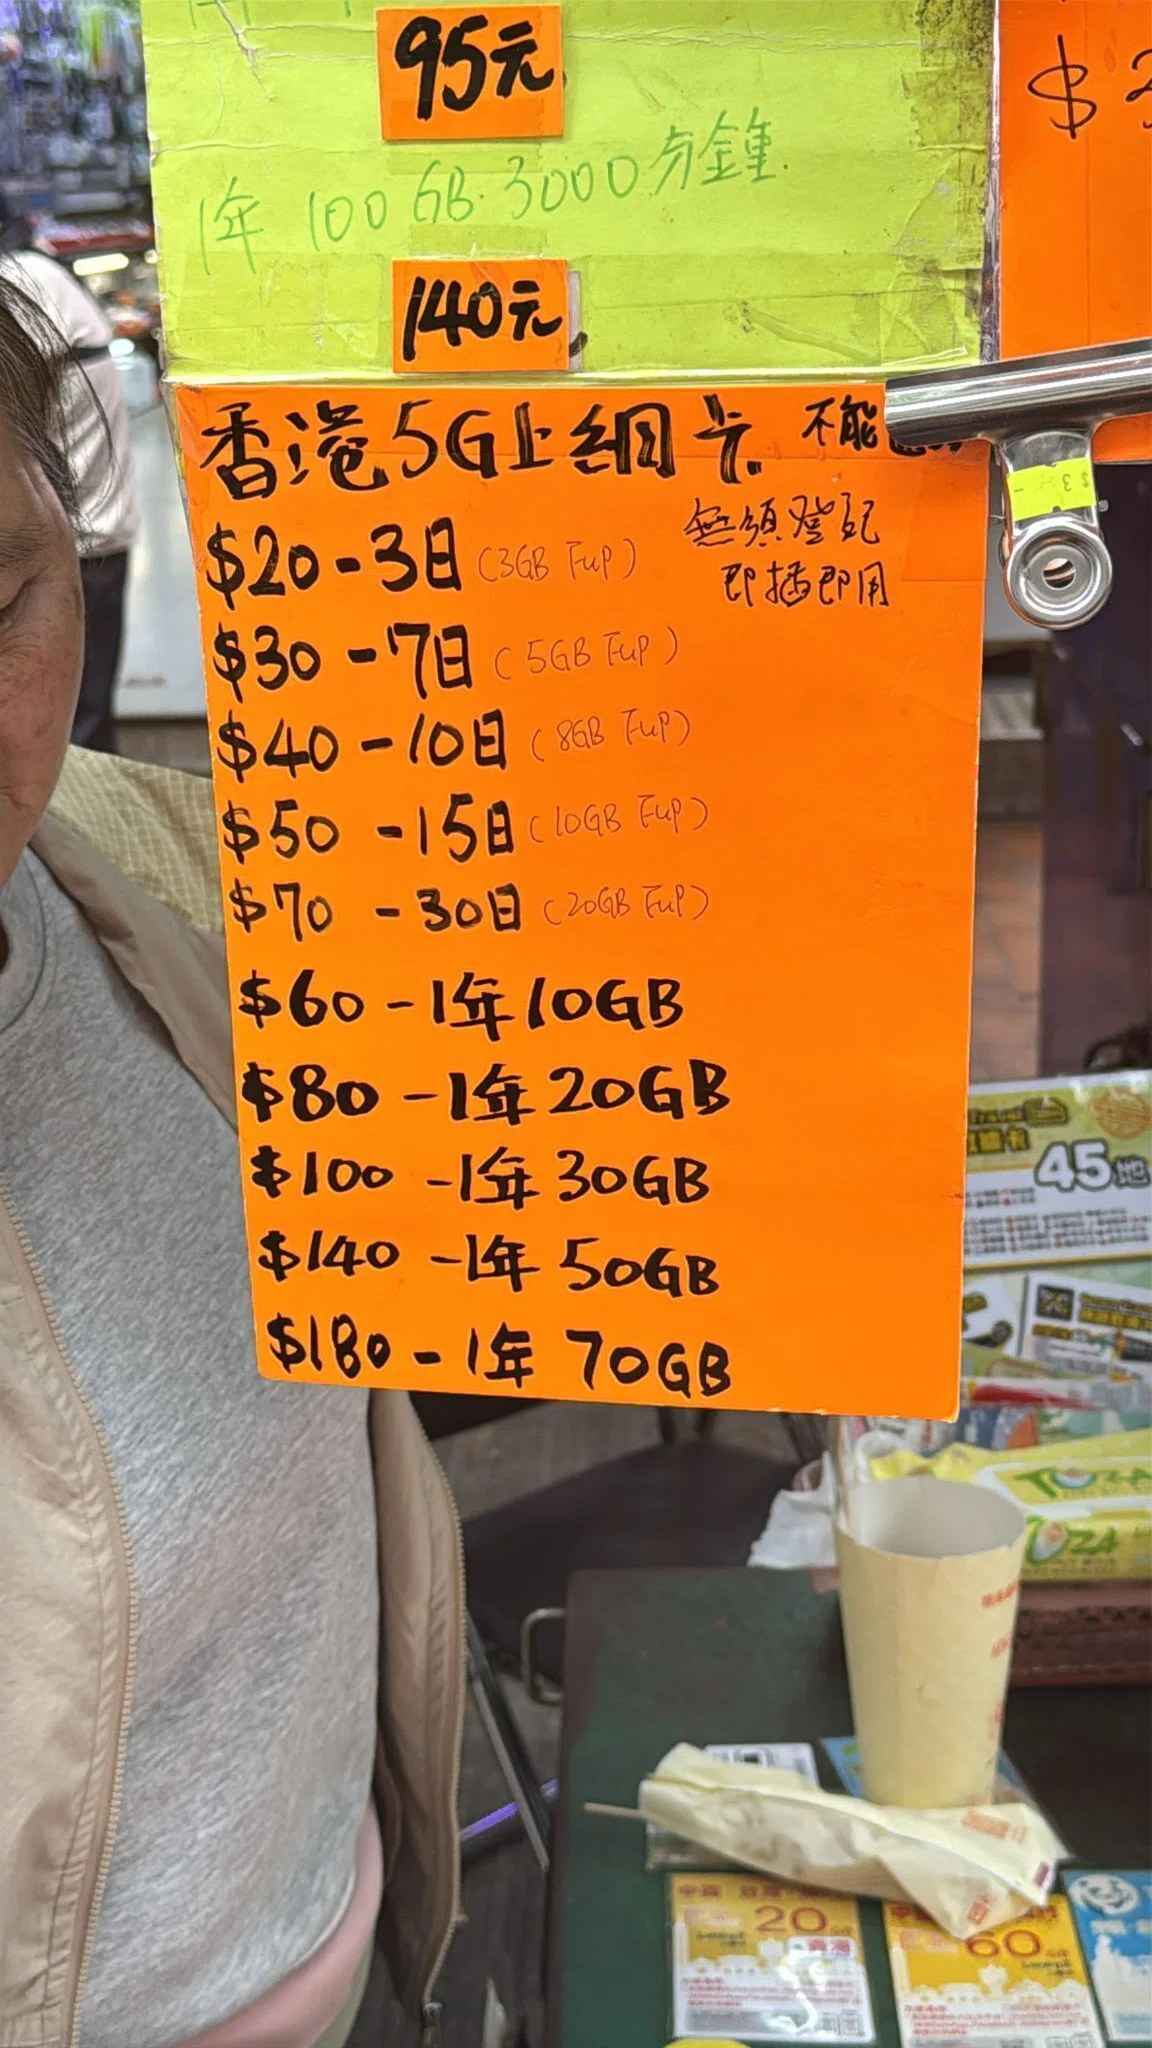 95元
1年 100GB 3000分鐘
140元
$
香港5G上網卡 不能
無須登記
即插即用
$20-3日(3GB FuP)
$30-7日(5GB FuP)
$40-10日(8GB FuP)
$50-15日(10GB FuP)
$70-30日(20GB FuP)
$60-1年10GB
$80-1年20GB
$100-1年30GB
$140-1年50GB
$180-1年70GB
45
20
60